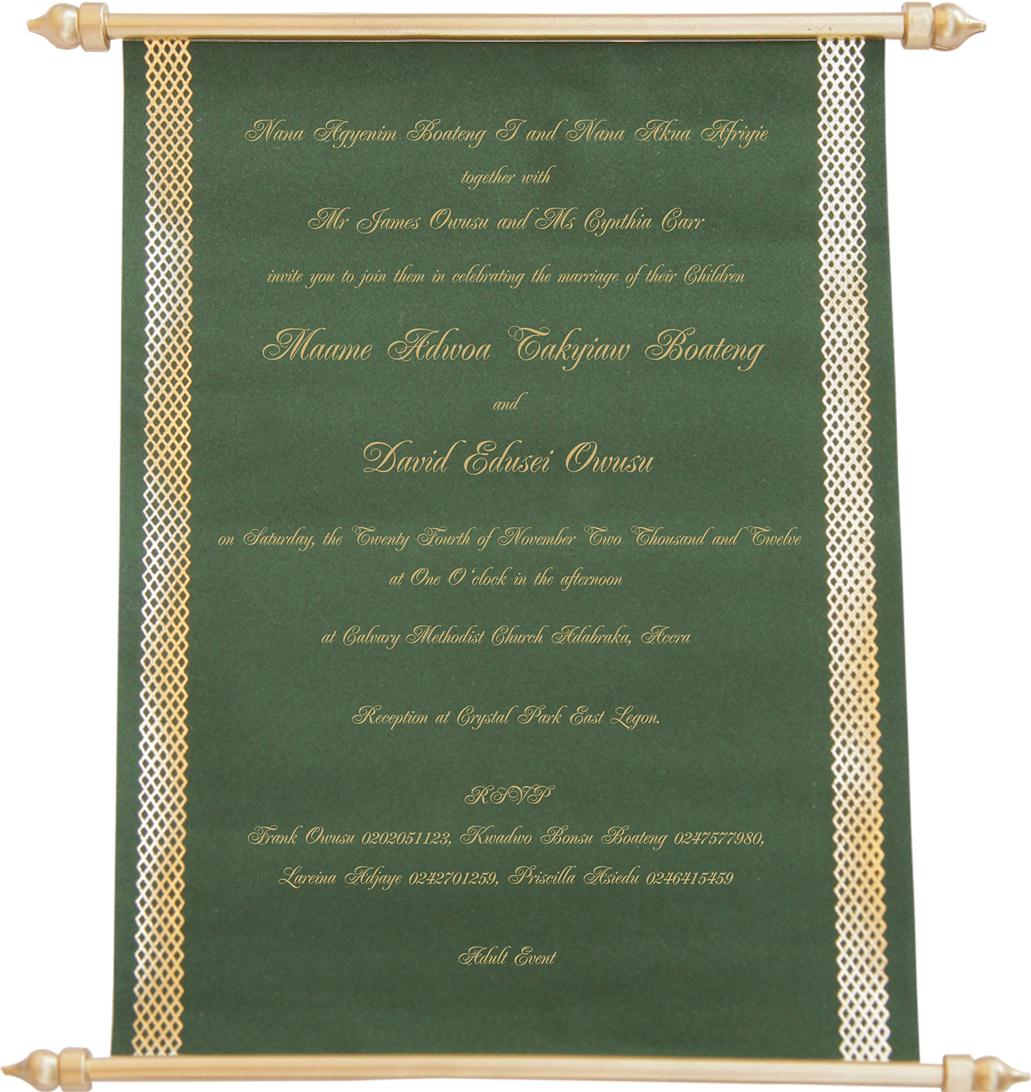 Nana Agyenim Boateng I and Nana Akua Afriyie
together with
Mr James Owusu and Ms Cynthia Carr
invite you to join them in celebrating the marriage of their Children
Maame Adwoa Takyiaw Boateng
and
David Edusei Owusu
on Saturday, the Twenty Fourth of November Two Thousand and Twelve
at One O'clock in the afternoon
at Calvary Methodist Church Adabraka, Accra
Reception at Crystal Park East Legon.
RSVP
Frank Owusu 0202051123, Kwadwo Bonsu Boateng 0247577980,
Lareina Adjaye 0242701259, Priscilla Asiedu 0246415459
Adult Event